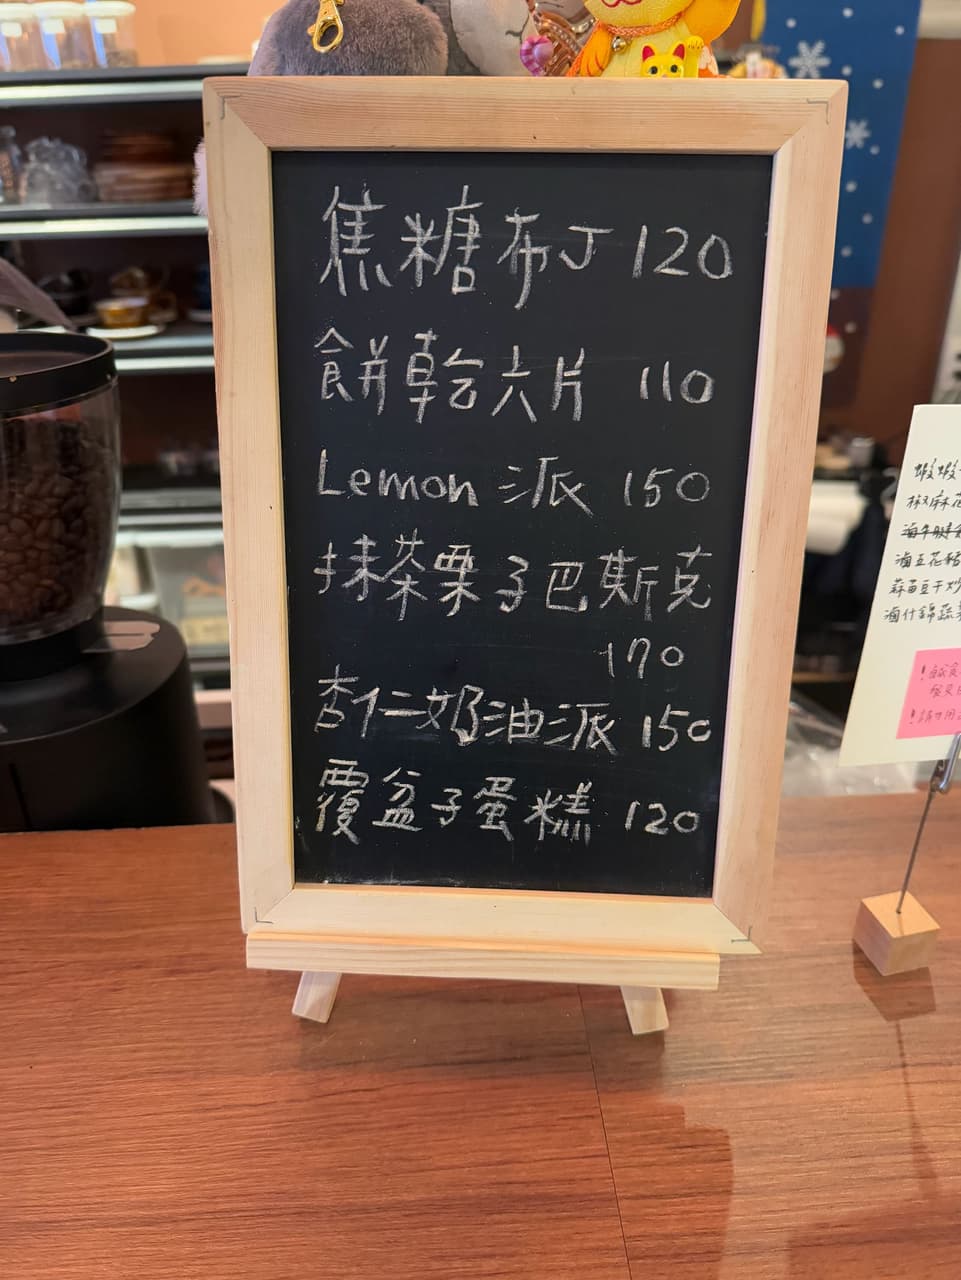 焦糖布丁 120
餅乾六片 110
Lemon 派 150
抹茶栗子巴斯克
170
杏仁奶油派 150
覆盆子蛋糕 120
椒麻花
滷牛腱
滷五花豬
蒜苗豆干炒
滷什錦蔬